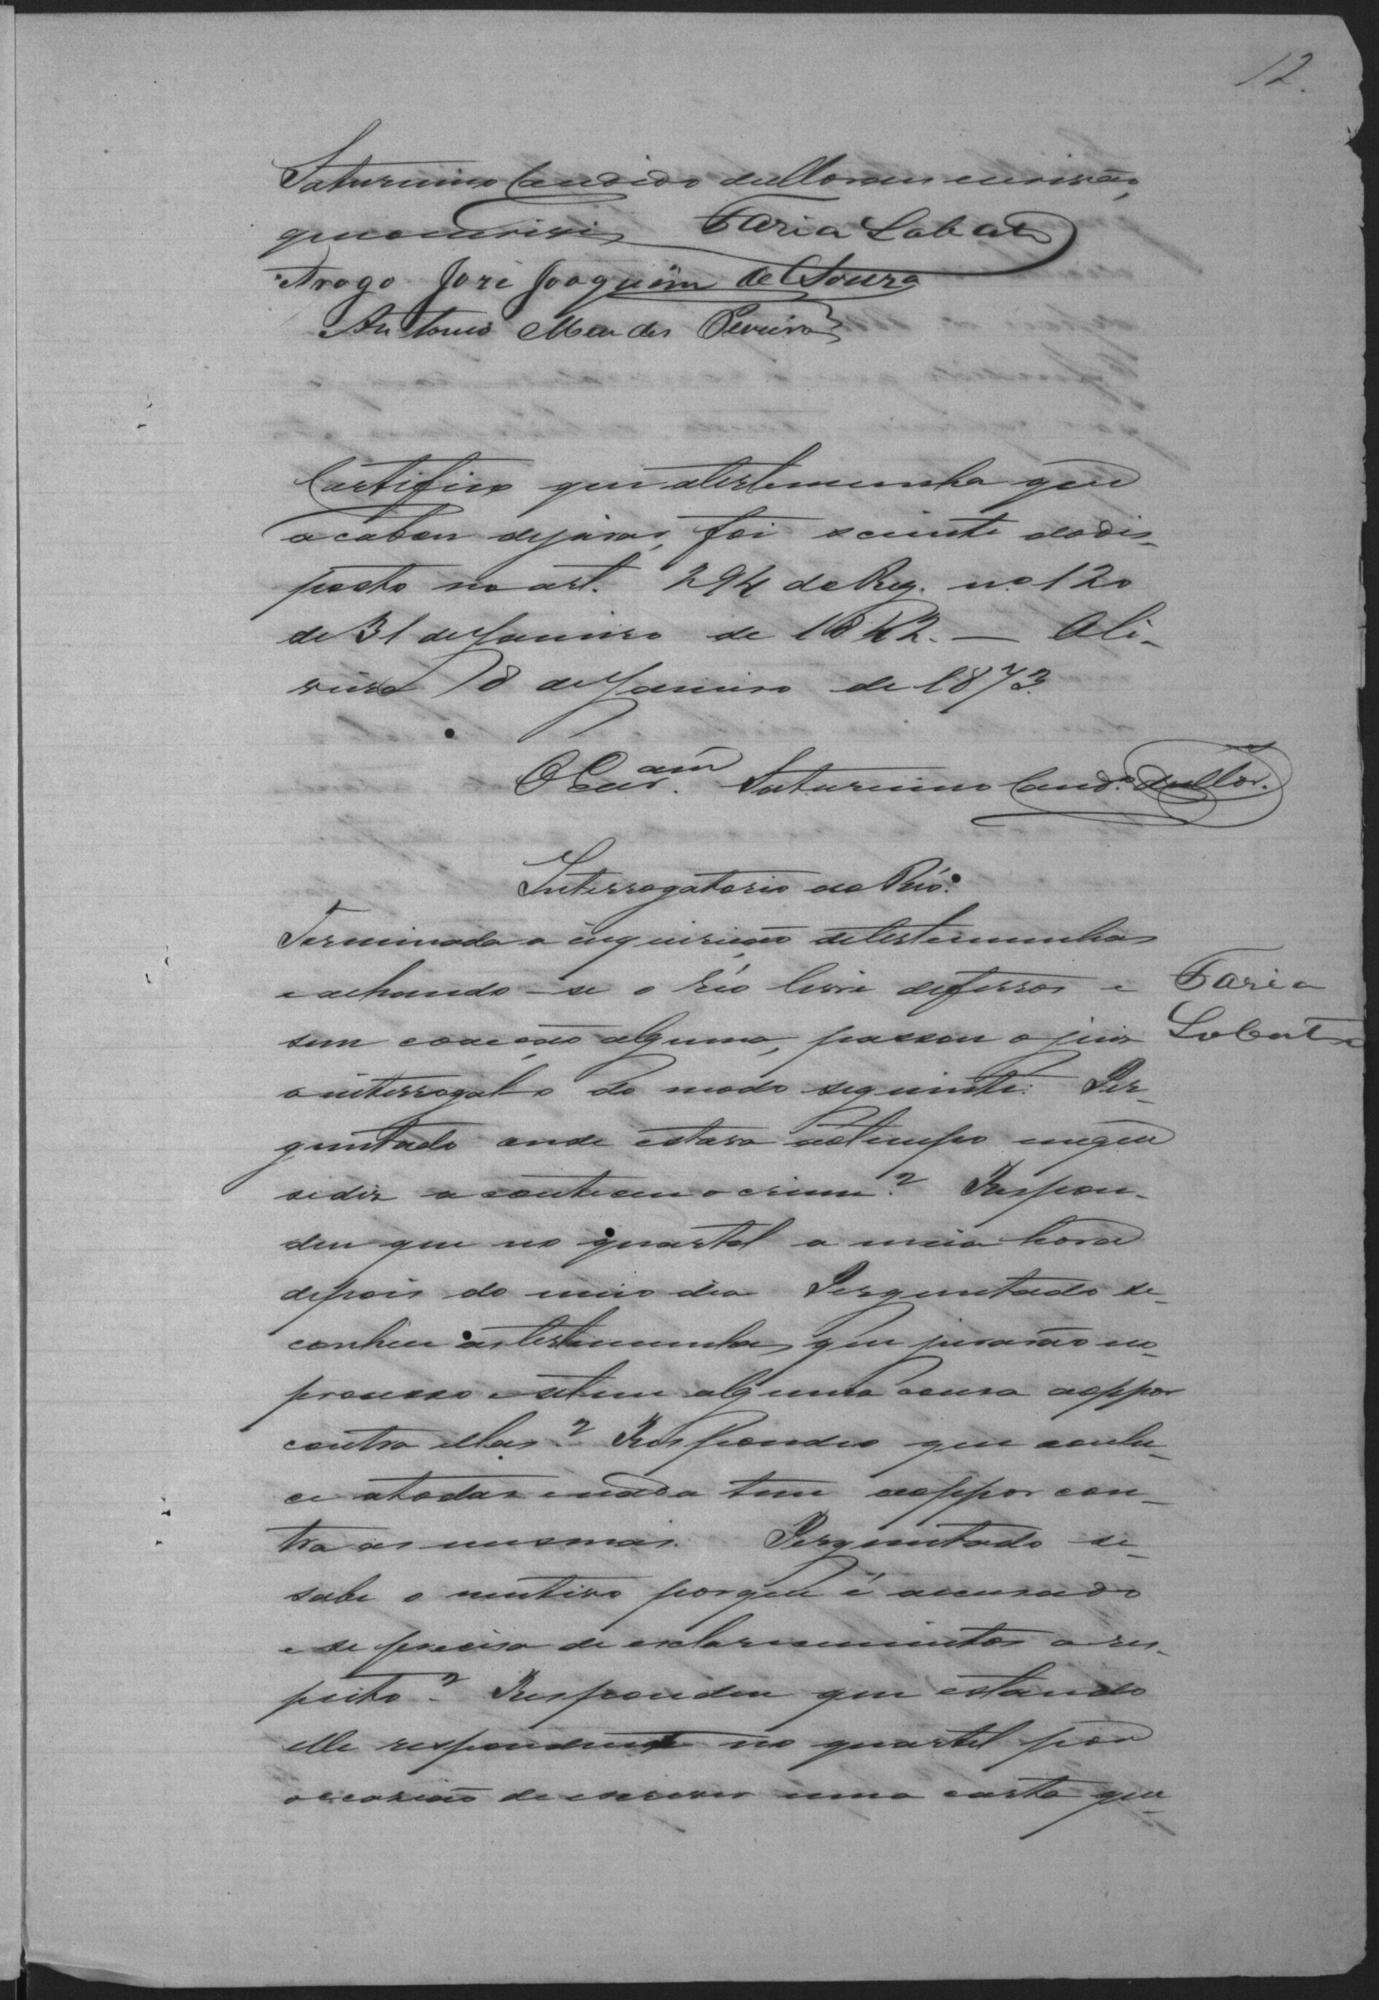 12.
Saturnino Candido de Moraes escrivão,
que o escrevi Faria Lobato
Arogo José Joaquim de Souza
Antonio Mendes Pereira
Certifico que a testemunha que
acabou de jurar, foi sciente do dis-
posto no art. 294 do Reg. no. 120
de 31 de Janeiro de 1842. — Oli-
veira 18 de Janeiro de 1873.
O Escram. Saturnino Cand.o de Mor.
Interrogatorio ao Réo.
Terminada a inquirição de testemunhas
e achando-se o réo livre de ferros e
sem coacção alguma, passou o juiz
a interrogal-o do modo seguinte: Per-
guntado onde estava ao tempo em que
se diz aconteceu o crime? Respon-
deu que no quartel a meia hora
depois do meio dia Perguntado se-
conhece as testemunhas que jurarão no
processo e se tem alguma cousa a oppor
contra ellas? Respondeo que conhe-
ce a todas e nada tem a oppor con-
tra as mesmas. Perguntado se-
sabe o motivo porque é accusado
e se precisa de esclarecimentos a res-
peito? Respondeu que estando
elle respondente no quartel por
occasião de escrever uma carta que
Faria
Lobato